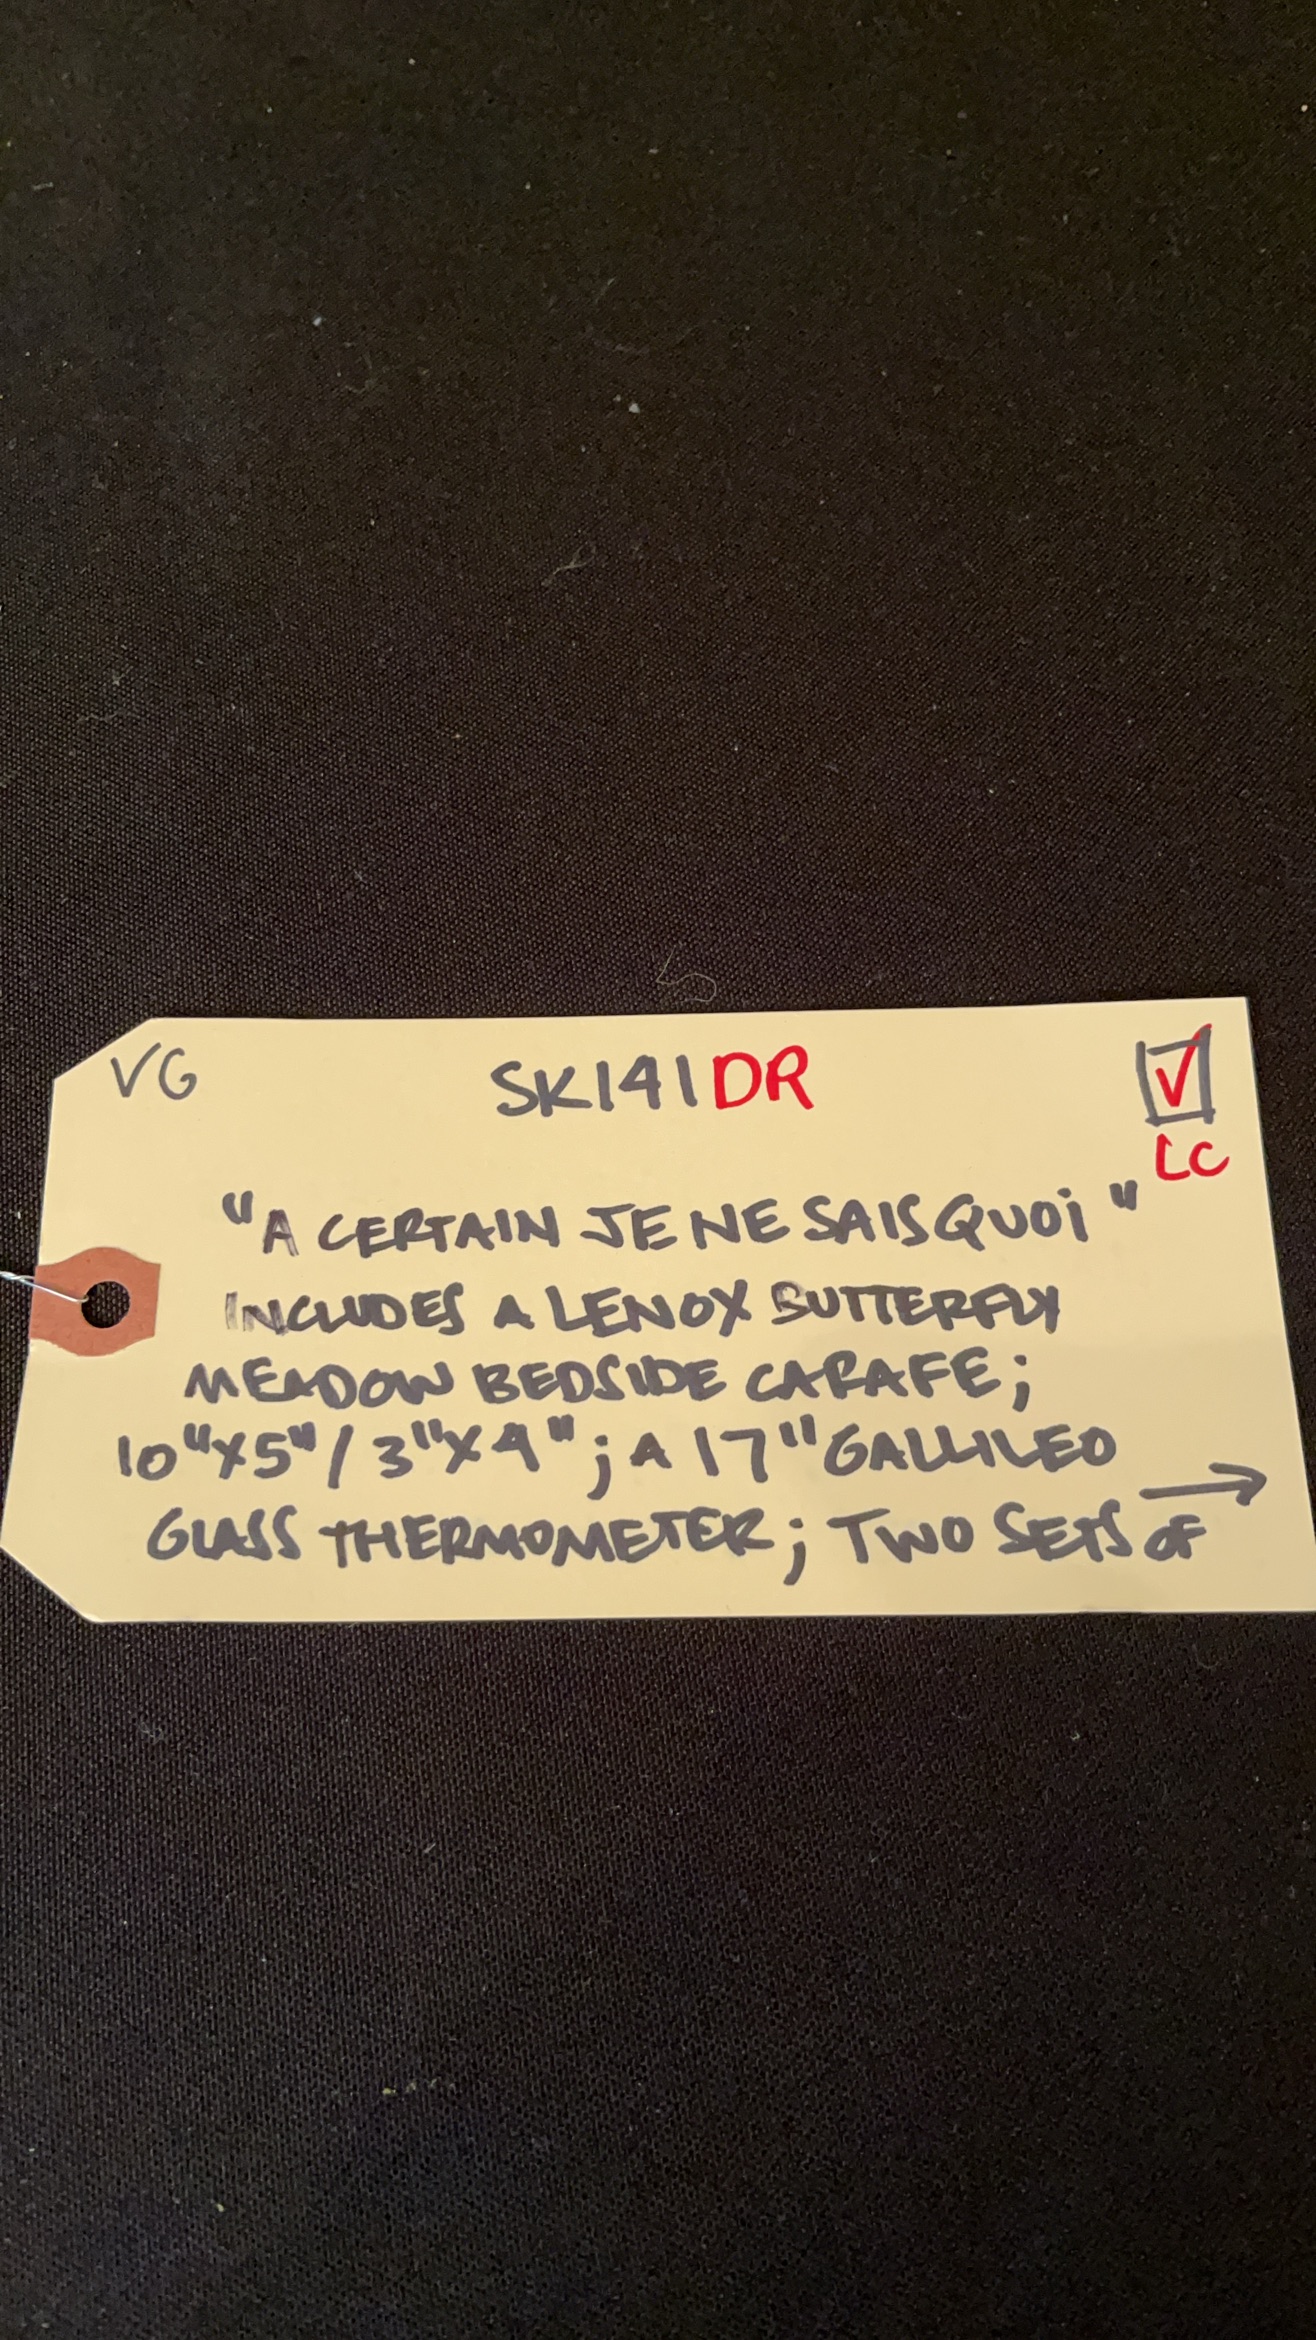 VG SK141DR
LC
"A CERTAIN JE NE SAIS QUOi"
INCLUDES A LENOX BUTTERFLY
MEADOW BEDSIDE CARAFE;
10"X5" / 3"X4"; A 17" GALLILEO
GLASS THERMOMETER; TWO SETS OF →